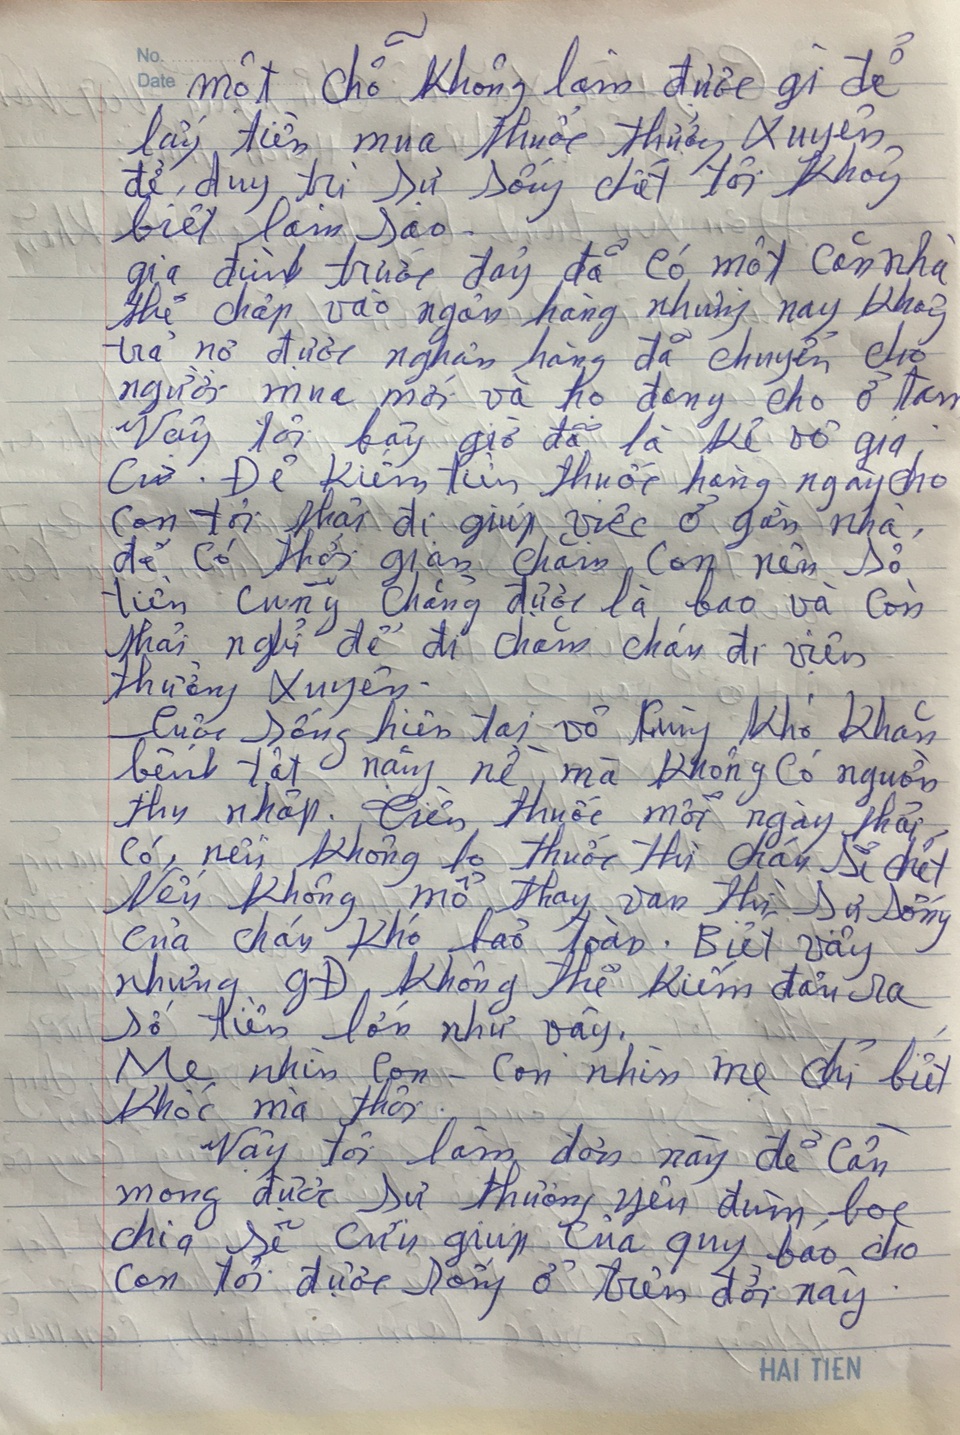 No.
Date
một chỗ không làm được gì để
lấy tiền mua thuốc thường xuyên
để duy trì sự sống chết tôi không
biết làm sao.
gia đình trước đây đã có một căn nhà
thế chấp vào ngân hàng nhưng nay không
trả nợ được nghân hàng đã chuyển cho
người mua mới và họ đang cho ở tạm
Vậy tôi bây giờ đã là kẻ vô gia
cư. Để kiếm tiền thuốc hàng ngày cho
con tôi phải đi giúp việc ở gần nhà,
để có thời gian chăm con nên số
tiền cũng chẳng được là bao và còn
phải nghỉ để đi chăm cháu đi viện
thường xuyên.
Cuộc sống hiện tại vô cùng khó khăn
bệnh tật nặng nề mà không có nguồn
thu nhập. Tiền thuốc mỗi ngày phải
có, nếu không lo thuốc thì cháu sẽ chết
Nếu không mổ thay van thì sự sống
của cháu khó bảo toàn. Biết vậy
nhưng gĐ không thể kiếm đâu ra
số tiền lớn như vậy.
Mẹ nhìn con - con nhìn mẹ chỉ biết
khóc mà thôi.
Vậy tôi làm đơn này để cần
mong được sự thương yêu đùm bọc
chia sẽ cứu giúp của quý báo cho
con tôi được sống ở trên đời này.
HẢI TIẾN